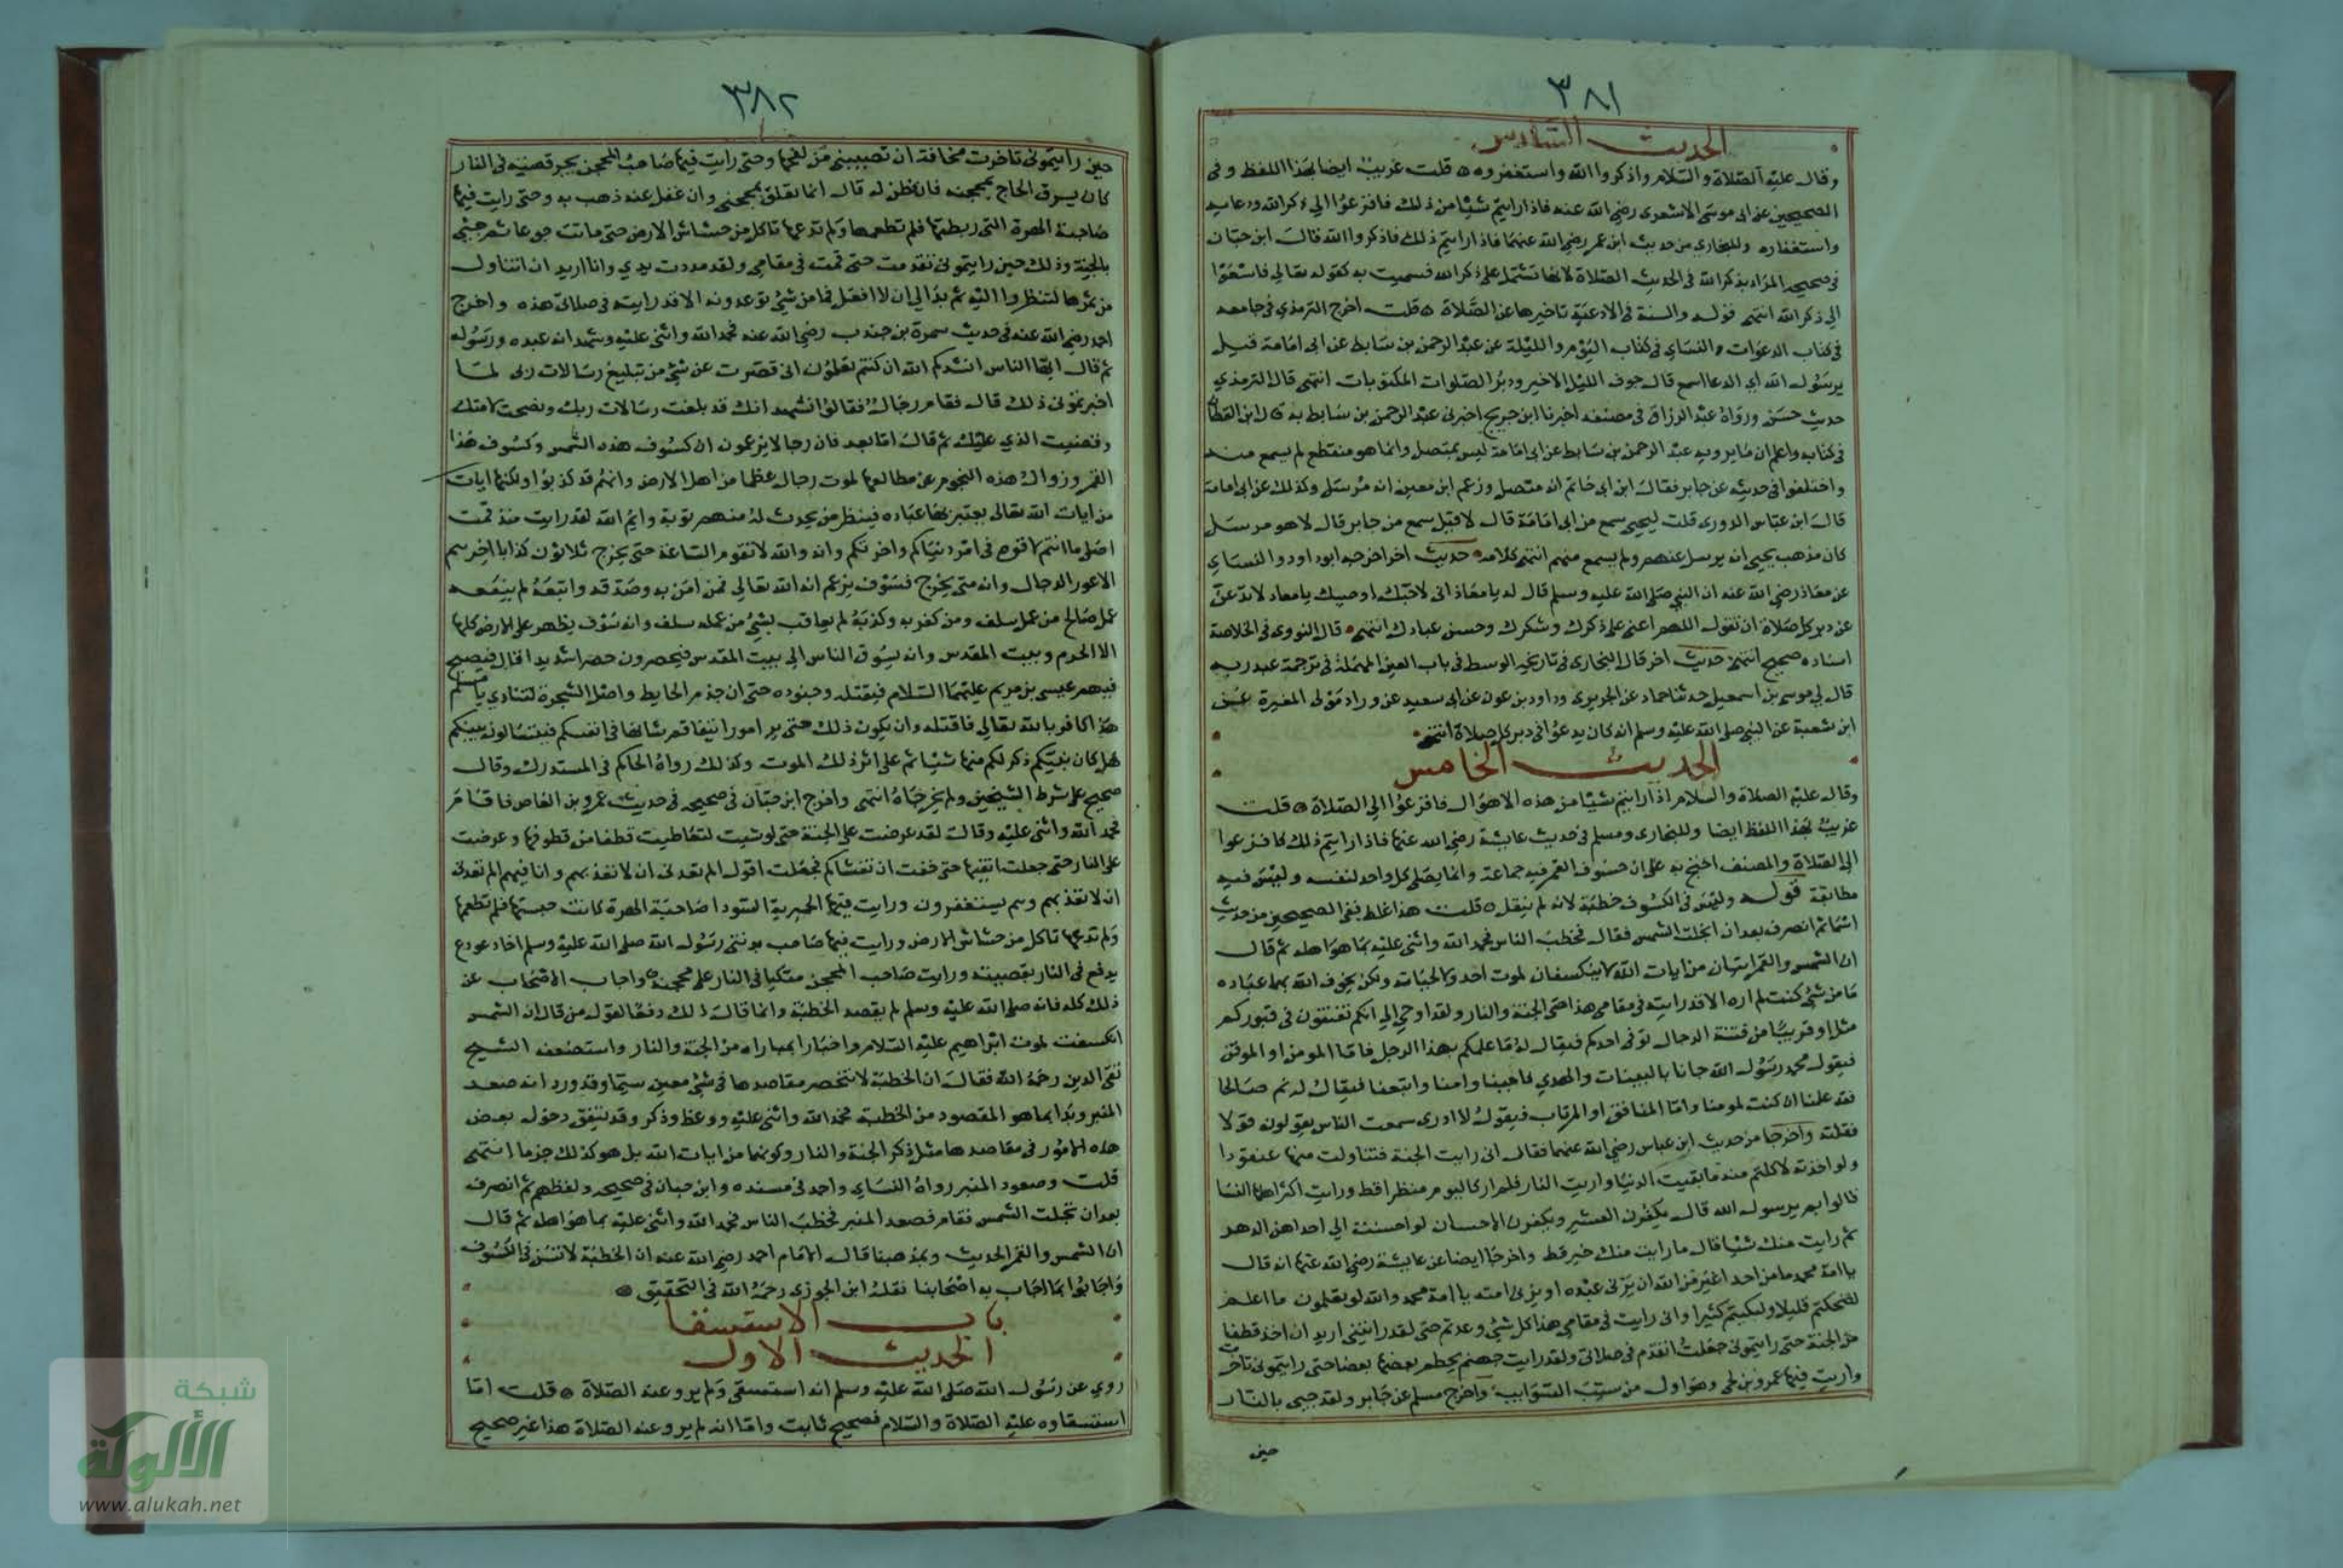 ٣٨١
الحديث السادس
وقال عليه الصلاة والسلام واذكروا الله واستغفروه قلت غريب ايضا بهذا اللفظ وفي
الصحيحين عن ابي موسى الاشعري رضي الله عنه فاذا رايتم شيئا من ذلك فافزعوا الى ذكر الله ودعايه
واستغفاره وللبخاري من حديث ابن عمر رضي الله عنهما فاذا رايتم ذلك فاذكروا الله قال ابن حبان
في صحيحه المراد بذكر الله في الحديث الصلاة لانها تشتمل على ذكر الله فسميت به كقوله تعالى فاسعوا
الى ذكر الله انتهى قوله والسنة في الادعية تاخيرها عن الصلاة قلت اخرج الترمذي في جامعه
في كتاب الدعوات والنساي في كتاب اليوم والليلة عن عبد الرحمن بن سابط عن ابي امامة قيل
يرسول الله اي الدعا اسمع قال جوف الليل الاخير ودبر الصلوات المكتوبات انتهى قال الترمذي
حديث حسن ورواه عبد الرزاق في مصنفه اخبرنا ابن جريج اخبرني عبد الرحمن بن سابط به قال ابن القطان
في كتابه واعلم ان ما يرويه عبد الرحمن بن سابط عن ابي امامة ليس بمتصل وانما هو منقطع لم يسمع منه
واختلفوا في حديثه عن جابر فقال ابن ابي حاتم انه متصل وزعم ابن معين انه مرسل وكذلك عن ابي امامة
قال ابن عباس الدوري قلت ليحيى سمع من ابي امامة قال لا قيل سمع من جابر قال لا هو مرسل
كان مذهب يحيى انه يرسل عنهم ولم يسمع منهم انتهى كلامه حديث اخر اخرجه ابو داود والنساي
عن معاذ رضي الله عنه ان النبي صلى الله عليه وسلم قال له يا معاذ اني لاحبك اوصيك يا معاد لا تدعن
عن دبر كل صلاة ان تقول اللهم اعني على ذكرك وشكرك وحسن عبادك انتهى قال النووي في الخلاصة
اسناده صحيح انتهى حديث اخر قال البخاري في تاريخه الوسط في باب العين المهملة في ترجمة عبد ربه
قال لي موسى بن اسمعيل حدثنا حماد عن الجريري وداود بن عون عن ابي سعيد عن وراد مولى المغيرة عن
ابن شعبة عن النبي صلى الله عليه وسلم انه كان يدعو في دبر كل صلاة انتهى
الحديث الخامس
وقال عليه الصلاة والسلام اذا رايتم شيئا من هذه الاهوال فافزعوا الى الصلاة قلت
غريب بهذا اللفظ ايضا وللبخاري ومسلم في حديث عايشة رضي الله عنها فاذا رايتم ذلك فافزعوا
الى الصلاة والمصنف احتج به على ان خسوف القمر فيه جماعة وانما يصلى كل واحد لنفسه وليس فيه
مطابقة قوله وليس في الكسوف خطبة لانه لم ينقل قلت هذا غلط ففي الصحيحين من حديث
اسما ثم انصرف بعد ان انجلت الشمس فقال فخطب الناس فحمد الله واثنى عليه بما هو اهله ثم قال
ان الشمس والقمر ايتان من ايات الله لا ينكسفان لموت احد ولا لحياته ولكن يخوف الله بهما عباده
ما من شي كنت لم اره الا قد رايته في مقامي هذا حتى الجنة والنار ولقد اوحي الي انكم تفتنون في قبوركم
مثل او قريبا من فتنة الدجال توفى احدكم فيقال له ما علمكم بهذا الرجل فاما المومن او الموقن
فيقول محمد رسول الله جانا بالبينات والهدي فاجبنا وامنا واتبعنا فيقال له نم صالحا
فقد علمنا ان كنت لمومنا واما المنافق او المرتاب فيقول لا ادري سمعت الناس يقولون قولا
فقلته واخرجا من حديث ابن عباس رضي الله عنهما فقال اني رايت الجنة فتناولت منها عنقودا
ولو اخذته لاكلتم منه ما بقيت الدنيا واريت النار فلم ار كاليوم منظرا قط ورايت اكثر اهلها النسا
قالوا بم يرسول الله قال بكفرهن العشير ويكفرن الاحسان لو احسنت الى احداهن الدهر
ثم رايت منك شيئا قال ما رايت منك خير قط واخرجا ايضا عن عايشة رضي الله عنها انه قال
يا امة محمد ما من احد اغير من الله ان يزني عبده او يزني امته يا امة محمد والله لو تعلمون ما اعلم
لضحكتم قليلا ولبكيتم كثيرا واني رايت في مقامي هذا كل شي وعدتم حتى لقد رايتني اريد ان اخذ قطفا
من الجنة حتى رايتموني جعلت اتقدم في صلاتي ولقد رايت جهنم يحطم بعضها بعضا حتى رايتموني تاخرت
واريت فيها عمرو بن لحي وهو اول من سيب السوايب واخرج مسلم عن جابر ولقد جيى بالنار
حين
٣٨٢
حين رايتموني تاخرت مخافة ان تصيبني من لفحها وحتى رايت فيها صاحب المحجن يجر قصبه في النار
كان يسرق الحاج بمحجنه فان فطن له قال انما تعلق بمحجني وان غفل عنه ذهب به وحتى رايت فيها
صاحبة الهرة التي ربطتها فلم تطعمها ولم تدعها تاكل من خشاش الارض حتى ماتت جوعا ثم جئي
بالجنة وذلك حين رايتموني تقدمت حتى قمت في مقامي ولقد مددت يدي وانا اريد ان اتناول
من ثمرها لتنظروا اليه ثم بدا لي ان لا افعل فما من شي توعدونه الا قد رايته في صلاتي هذه واخرج
احمد رضي الله عنه في حديث سمرة بن جندب رضي الله عنه فحمد الله واثنى عليه وشهد انه عبده ورسوله
ثم قال ايها الناس انشدكم الله ان كنتم تعلمون اني قصرت عن شي من تبليغ رسالات ربي لما
اخبرتموني ذلك قال فقام رجال فقالوا نشهد انك قد بلغت رسالات ربك ونصحت لامتك
وقضيت الذي عليك ثم قال اما بعد فان رجالا يزعمون ان كسوف هذه الشمس وكسوف هذا
القمر وزوال هذه النجوم عن مطالعها لموت رجال عظما من اهل الارض وانهم قد كذبوا ولكنها ايات
من ايات الله تعالى يعتبر بها عباده فينظر من يحدث له منهم توبة وايم الله لقد رايت منذ قمت
اصلي ما انتم لاقوه في امر دنياكم واخرتكم وانه والله لا تقوم الساعة حتى يخرج ثلاثون كذابا اخرهم
الاعور الدجال وانه متى يخرج فسوف يزعم انه الله تعالى فمن امن به وصدقه واتبعه لم ينفعه
عمل صالح من عمل سلف ومن كفر به وكذبه لم يعاقب بشي من عمله سلف وانه سوف يظهر على الارض كلها
الا الحرم وبيت المقدس وانه يسوق الناس الى بيت المقدس فيحصرون حصرا شديدا قال فيصبح
فيهم عيسى بن مريم عليهما السلام فيقتله وجنوده حتى ان جذم الحايط واصل الشجرة لتنادي يا مسلم
هذا كافر بالله تعالى فاقتله ولن يكون ذلك حتى يروا امورا يتفاقم شانها في انفسكم فيتسالون بينكم
هل كان نبيكم ذكر لكم منها شيئا ثم على اثر ذلك الموت وكذلك رواه الحاكم في المستدرك وقال
صحيح على شرط الشيخين ولم يخرجاه انتهى واخرج ابن حبان في صحيحه في حديث عمرو بن العاص فاقام
فحمد الله واثنى عليه وقال لقد عرضت علي الجنة حتى لو شيت لتعاطيت قطفا من قطوفها وعرضت
علي النار حتى جعلت اتقيها حتى خفت ان تغشاكم فجعلت اقول الم تعدني ان لا تعذبهم وانا فيهم الم تعدني
ان لا تعذبهم وهم يستغفرون ورايت فيها الحميرية السودا صاحبة الهرة كانت حبستها فلم تطعمها
ولم تدعها تاكل من خشاش الارض ورايت فيها صاحب بدنتي رسول الله صلى الله عليه وسلم اخا دعدع
يدفع في النار بقصبته ورايت صاحب المحجن متكيا في النار على محجنه واجاب الاصحاب عن
ذلك كله فانه صلى الله عليه وسلم لم يقصد الخطبة وانما قال ذلك دفعا لقول من قال ان الشمس
انكسفت لموت ابراهيم عليه السلام واخبارا بما راه من الجنة والنار واستضعفه الشيخ
تقي الدين رحمه الله فقال ان الخطبة لا تنحصر مقاصدها في شي معين سيما وقد ورد انه صعد
المنبر وبدا بما هو المقصود من الخطبة فحمد الله واثنى عليه ووعظ وذكر وقد يتفق دخول بعض
هذه الامور في مقاصدها مثل ذكر الجنة والنار وكونهما من ايات الله بل هو كذلك جزما انتهى
قلت وصعود المنبر رواه النساي واحمد في مسنده وابن حبان في صحيحه ولفظهم ثم انصرف
بعد ان تجلت الشمس فقام فصعد المنبر فخطب الناس فحمد الله واثنى عليه بما هو اهله ثم قال
ان الشمس والقمر الحديث وبمذهبنا قال الامام احمد رضي الله عنه ان الخطبة لا تسن في الكسوف
واجابوا بما اجاب به اصحابنا نقله ابن الجوزي رحمه الله في التحقيق
باب الاستسقا
الحديث الاول
روي عن رسول الله صلى الله عليه وسلم انه استسقى ولم يرو عنه الصلاة قلت اما
استسقاوه عليه الصلاة والسلام فصحيح ثابت واما انه لم يرو عنه الصلاة هذا غير صحيح
شبكة
الألوكة
www.alukah.net